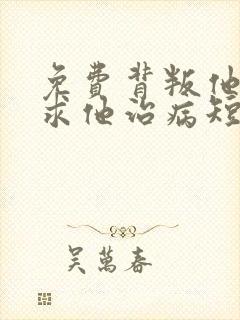 免費背叛他
求他治病短
吳萬春